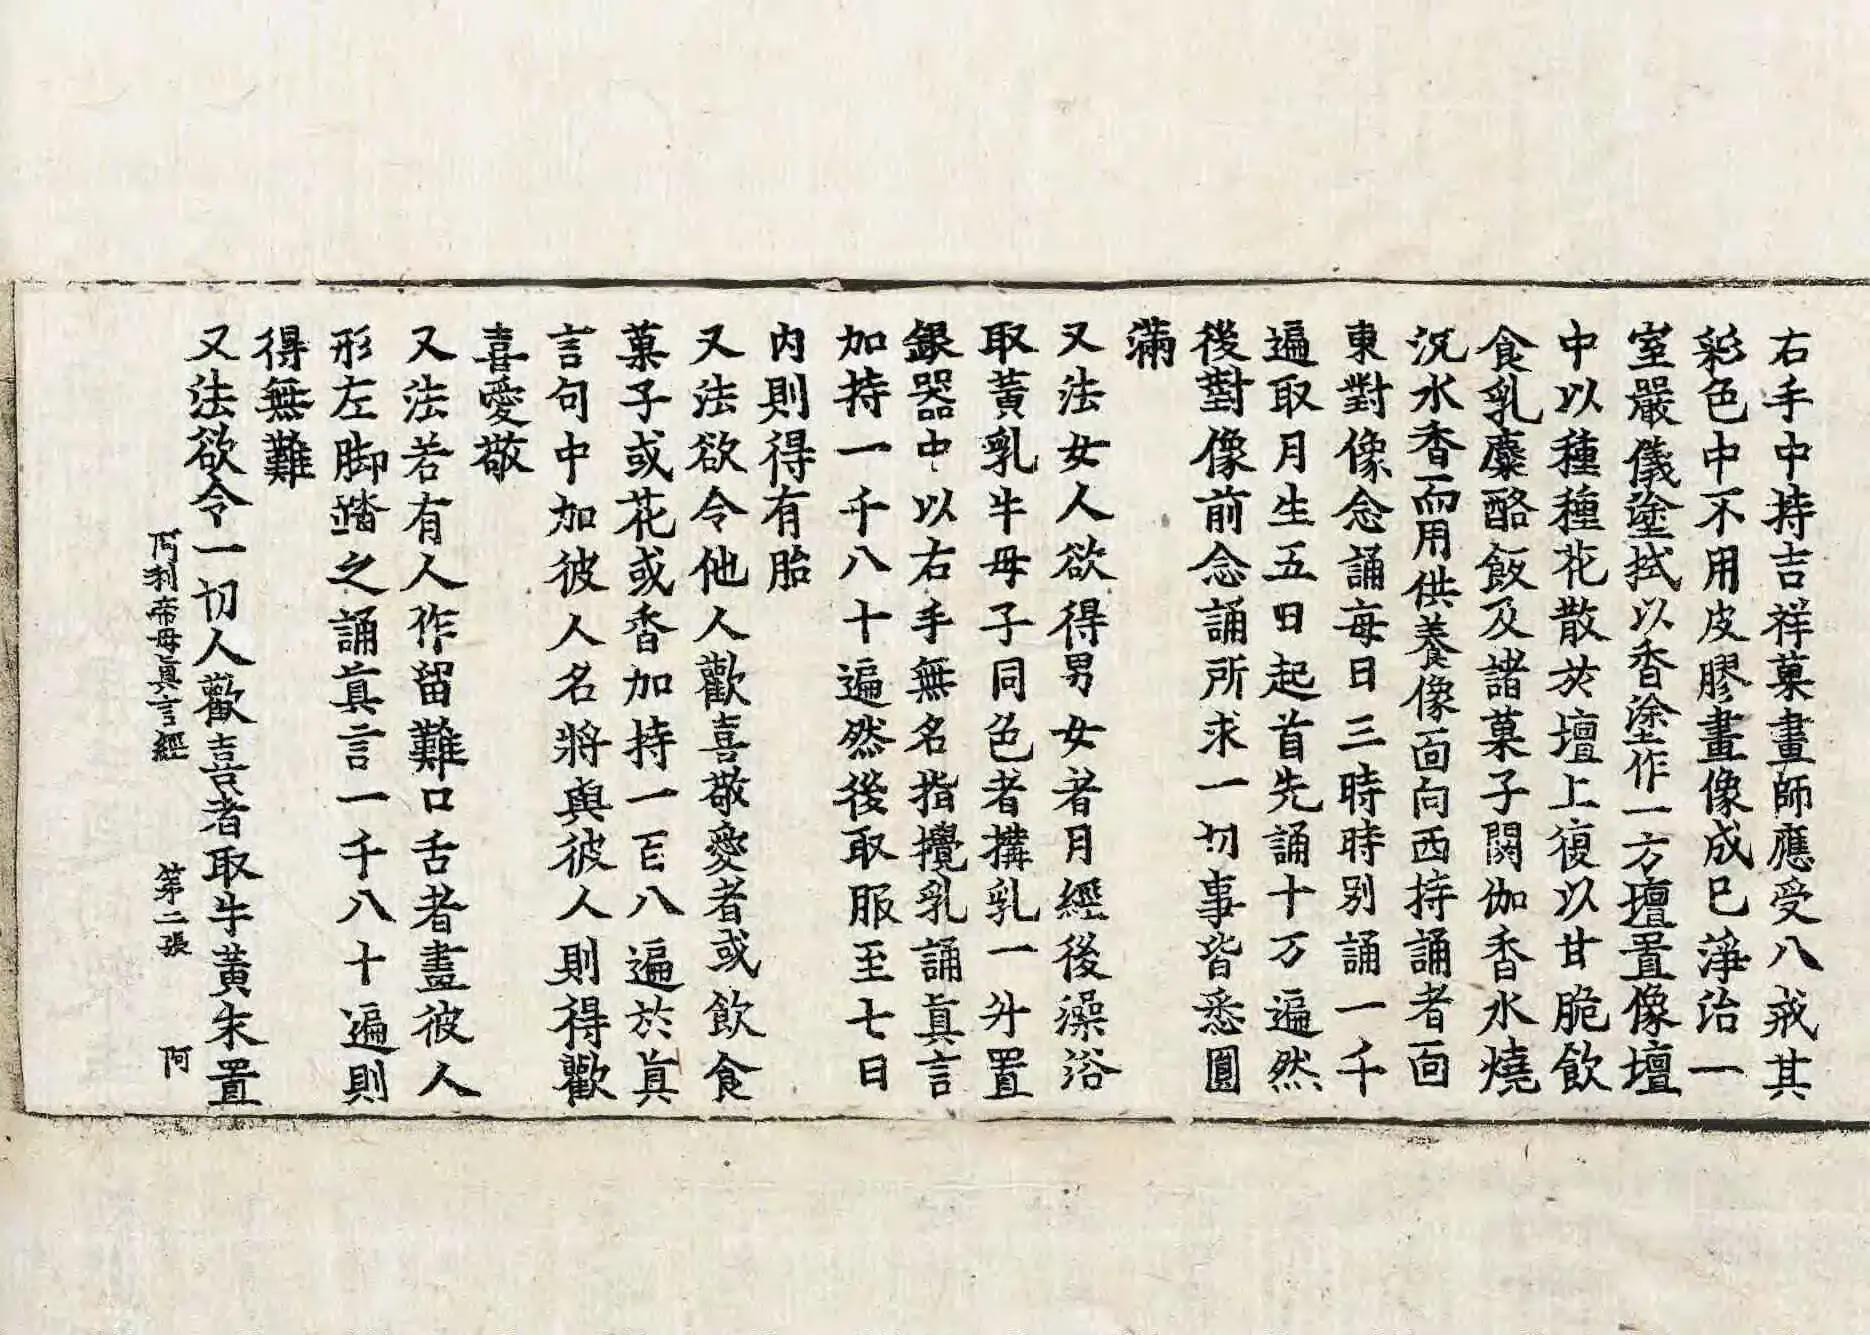 右手中持吉祥菓畫師應受八戒其
彩色中不用皮膠畫像成已淨治一
室嚴儀塗拭以香塗作一方壇置像壇
中以種種花散於壇上復以甘脆飲
食乳糜酪飯及諸菓子閼伽香水燒
沉水香而用供養像面向西持誦者面
東對像念誦每日三時時別誦一千
遍取月生五日起首先誦十万遍然
後對像前念誦所求一切事皆悉圓
滿
又法女人欲得男女者月經後澡浴
取黃乳牛母子同色者搆乳一升置
銀器中以右手無名指攪乳誦真言
加持一千八十遍然後取服至七日
內則得有胎
又法欲令他人歡喜敬愛者或飲食
菓子或花或香加持一百八遍於真
言句中加彼人名將與彼人則得歡
喜愛敬
又法若有人作留難口舌者畫彼人
形左脚踏之誦真言一千八十遍則
得無難
又法欲令一切人歡喜者取牛黃朱置
阿利帝母眞言經　第二張　阿